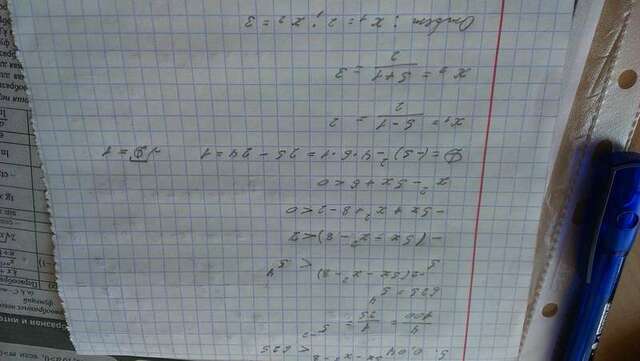 5. 0,04^5x-x²-8 < 625
4/100 = 1/25 = 5^-2
625 = 5^4
5^-2(5x-x²-8) < 5^4
-(5x-x²-8)<2
-5x+x²+8-2<0
x²-5x+6<0
D=(-5)²-4·6·1=25-24=1 √D=1
x₁= 5-1/2 = 2
x₂= 5+1/2 = 3
Ответ: x₁=2; x₂=3